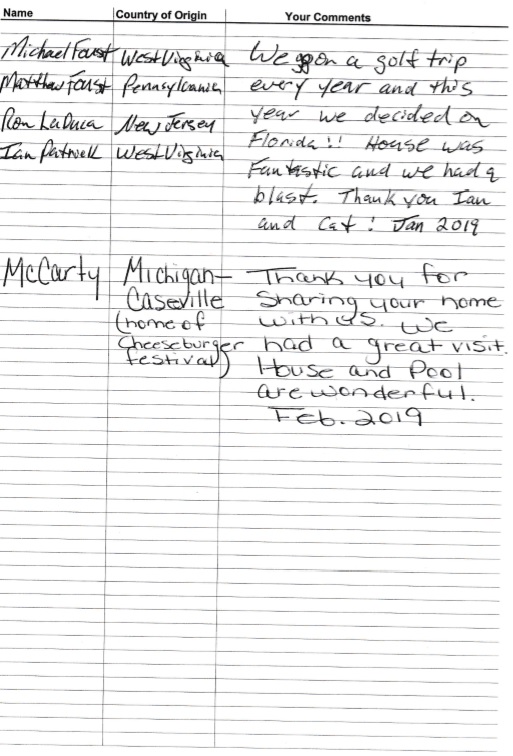 Name Country of Origin Your Comments
Michael Foust West Virginia We go on a golf trip
Matthew Foust Pennsylvania every year and this
Ron LaDuca New Jersey year we decided on
Ian Patnell West Virginia Florida!! House was
Fantastic and we had a
blast. Thank you Ian
and Cat! Jan 2019
McCarty Michigan- Thank you for
Caseville Sharing your home
(home of with us. We
Cheeseburger had a great visit.
festival) House and Pool
are wonderful.
Feb. 2019